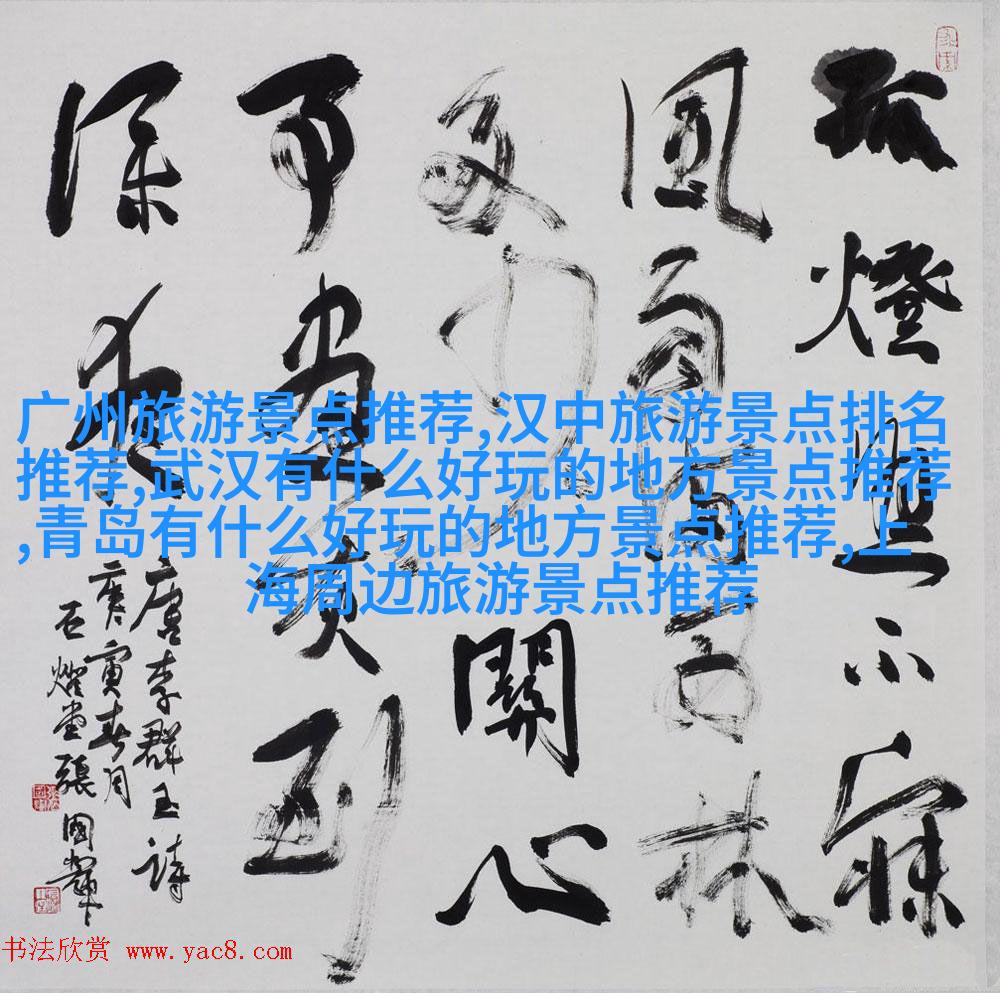 孤燈照不寐
風雨滿西林
多少關心
事書灰到
深夜
唐李群玉詩
庚寅春月
石燈堂張國
广州旅游景点推荐,汉中旅游景点排名
推荐,武汉有什么好玩的地方景点推荐
,青岛有什么好玩的地方景点推荐,上
海周边旅游景点推荐
书法欣赏 www.yac8.com